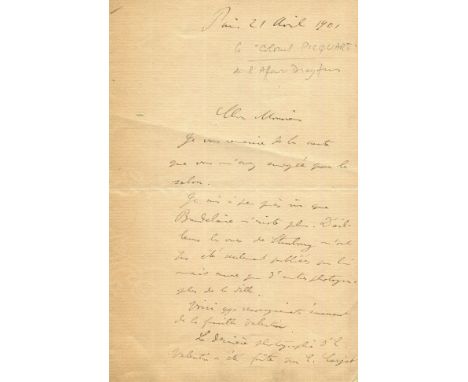 Paris 21 Avril 1901
le "Colonel PICQUART"
de l'Affaire Dreyfus
Cher Monsieur
Je vous remercie de la carte
que vous m'avez envoyée pour le
salon.
Je suis à peu près sûr que
Baudelaire n'existe plus. D'ail-
leurs les vues de Strasbourg n'ont
pas été seulement publiées par lui
mais aussi par d'autres photogra-
phes de la ville.
Voici qq. renseignements émanant
de la famille Valentin.
La dernière photographie d'E.
Valentin a été faite par E. Carjat